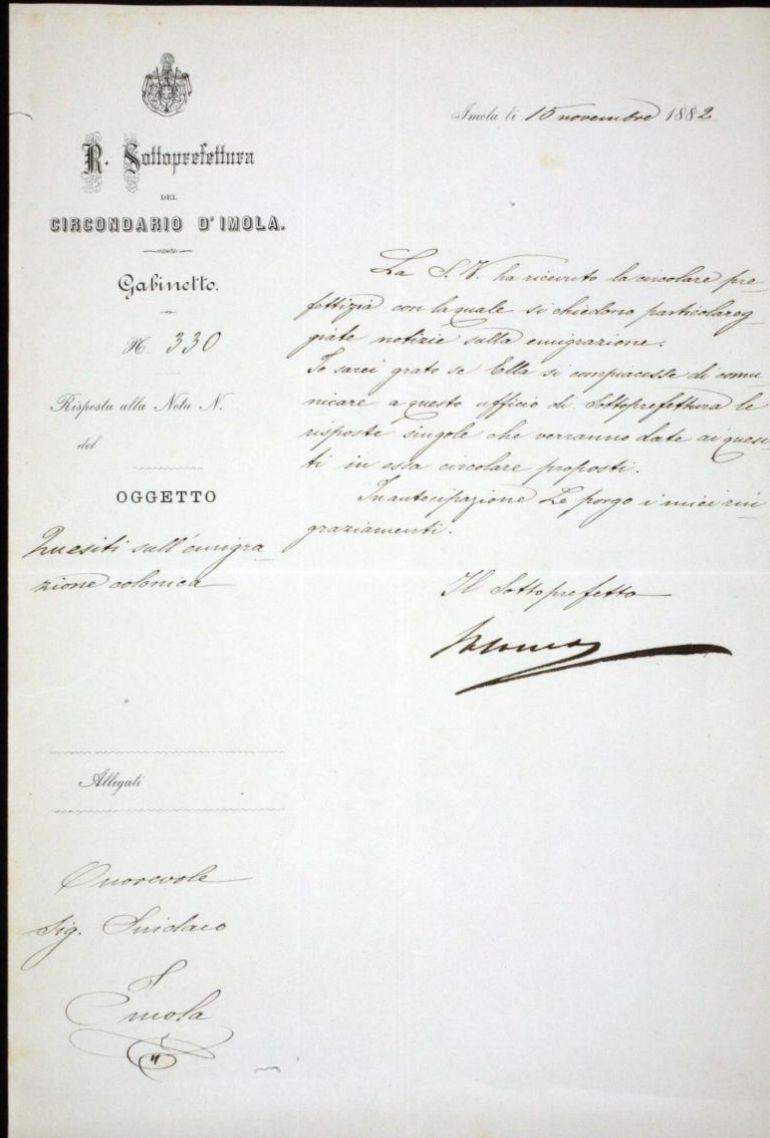 R. Sottoprefettura
DEL
CIRCONDARIO D'IMOLA.
Gabinetto.
N. 330
Risposta alla Nota N.
del
OGGETTO
Quesiti sull'emigra-
zione colonica
Allegati
Onorevole
Sig. Sindaco
Imola
Imola li 15 novembre 1882
La S. V. ha ricevuto la circolare pre-
fettizia con la quale si chiedono particolareg-
giate notizie sulla emigrazione.
Io sarei grato se Ella si compiacesse di comu-
nicare a questo ufficio di Sottoprefettura le
risposte singole che verranno date ai quesi-
ti in essa circolare proposti.
In antecipazione Le porgo i miei rin-
graziamenti.
Il Sottoprefetto